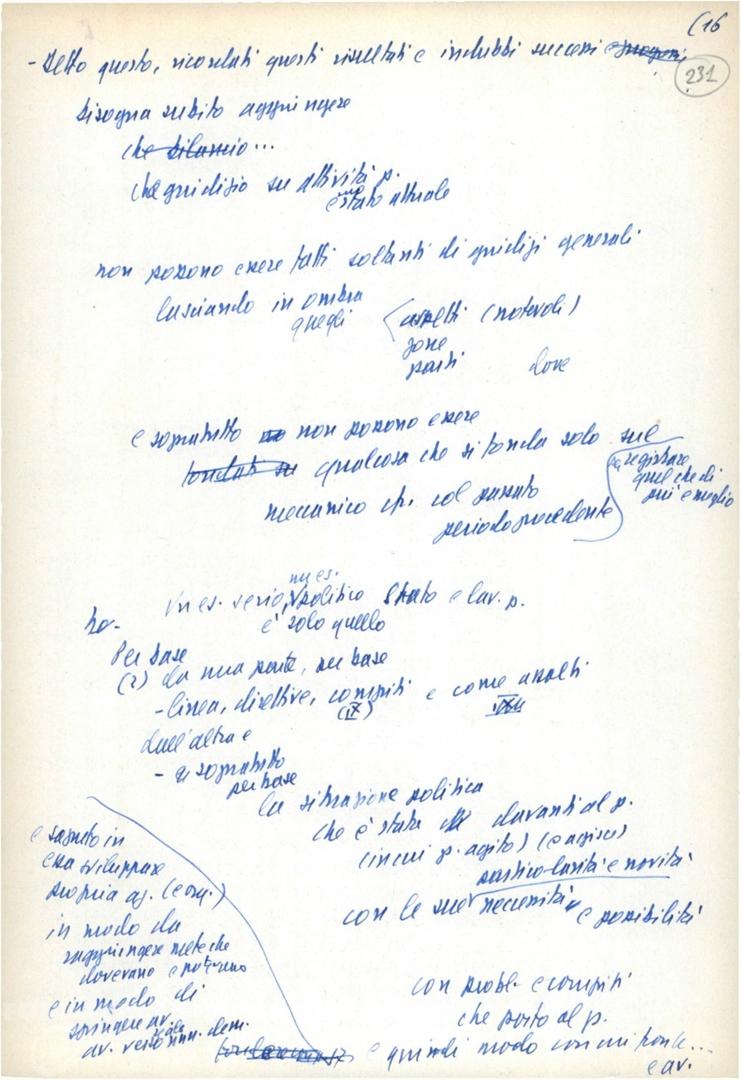 (16
231
- Detto questo, ricordati questi risultati e indubbi successi
bisogna subito aggiungere
che bilancio...
che giudizio su attività p.
e stato attuale
non possono essere fatti soltanti di giudizi generali
lasciando in ombra
quegli
aspetti (notevoli)
zone
parti dove
e sopratutto non possono essere
fondati su qualcosa che si fonda solo sul
meccanico cfr. col passato
periodo precedente
registrare
quel che di
più e meglio
Un es. serio, politico Stato e lav. p.
è solo quello
Per base
(2) da una parte, per base
- linea, direttive, compiti e come assolti
(IX)
dall'altra e
- e sopratutto
per base
la situazione politica
che è stata davanti al p.
(in cui p. agito) (e agisce)
particolarità e novità
con le sue necessità
e possibilità
con probl. e compiti
che posto al p.
e quindi modo con cui
e av.
e saputo in
essa sviluppare
propria az. (e org.)
in modo da
raggiungere mete che
dovevano e potevano
e in modo di
spingere av.
av. verso dem.